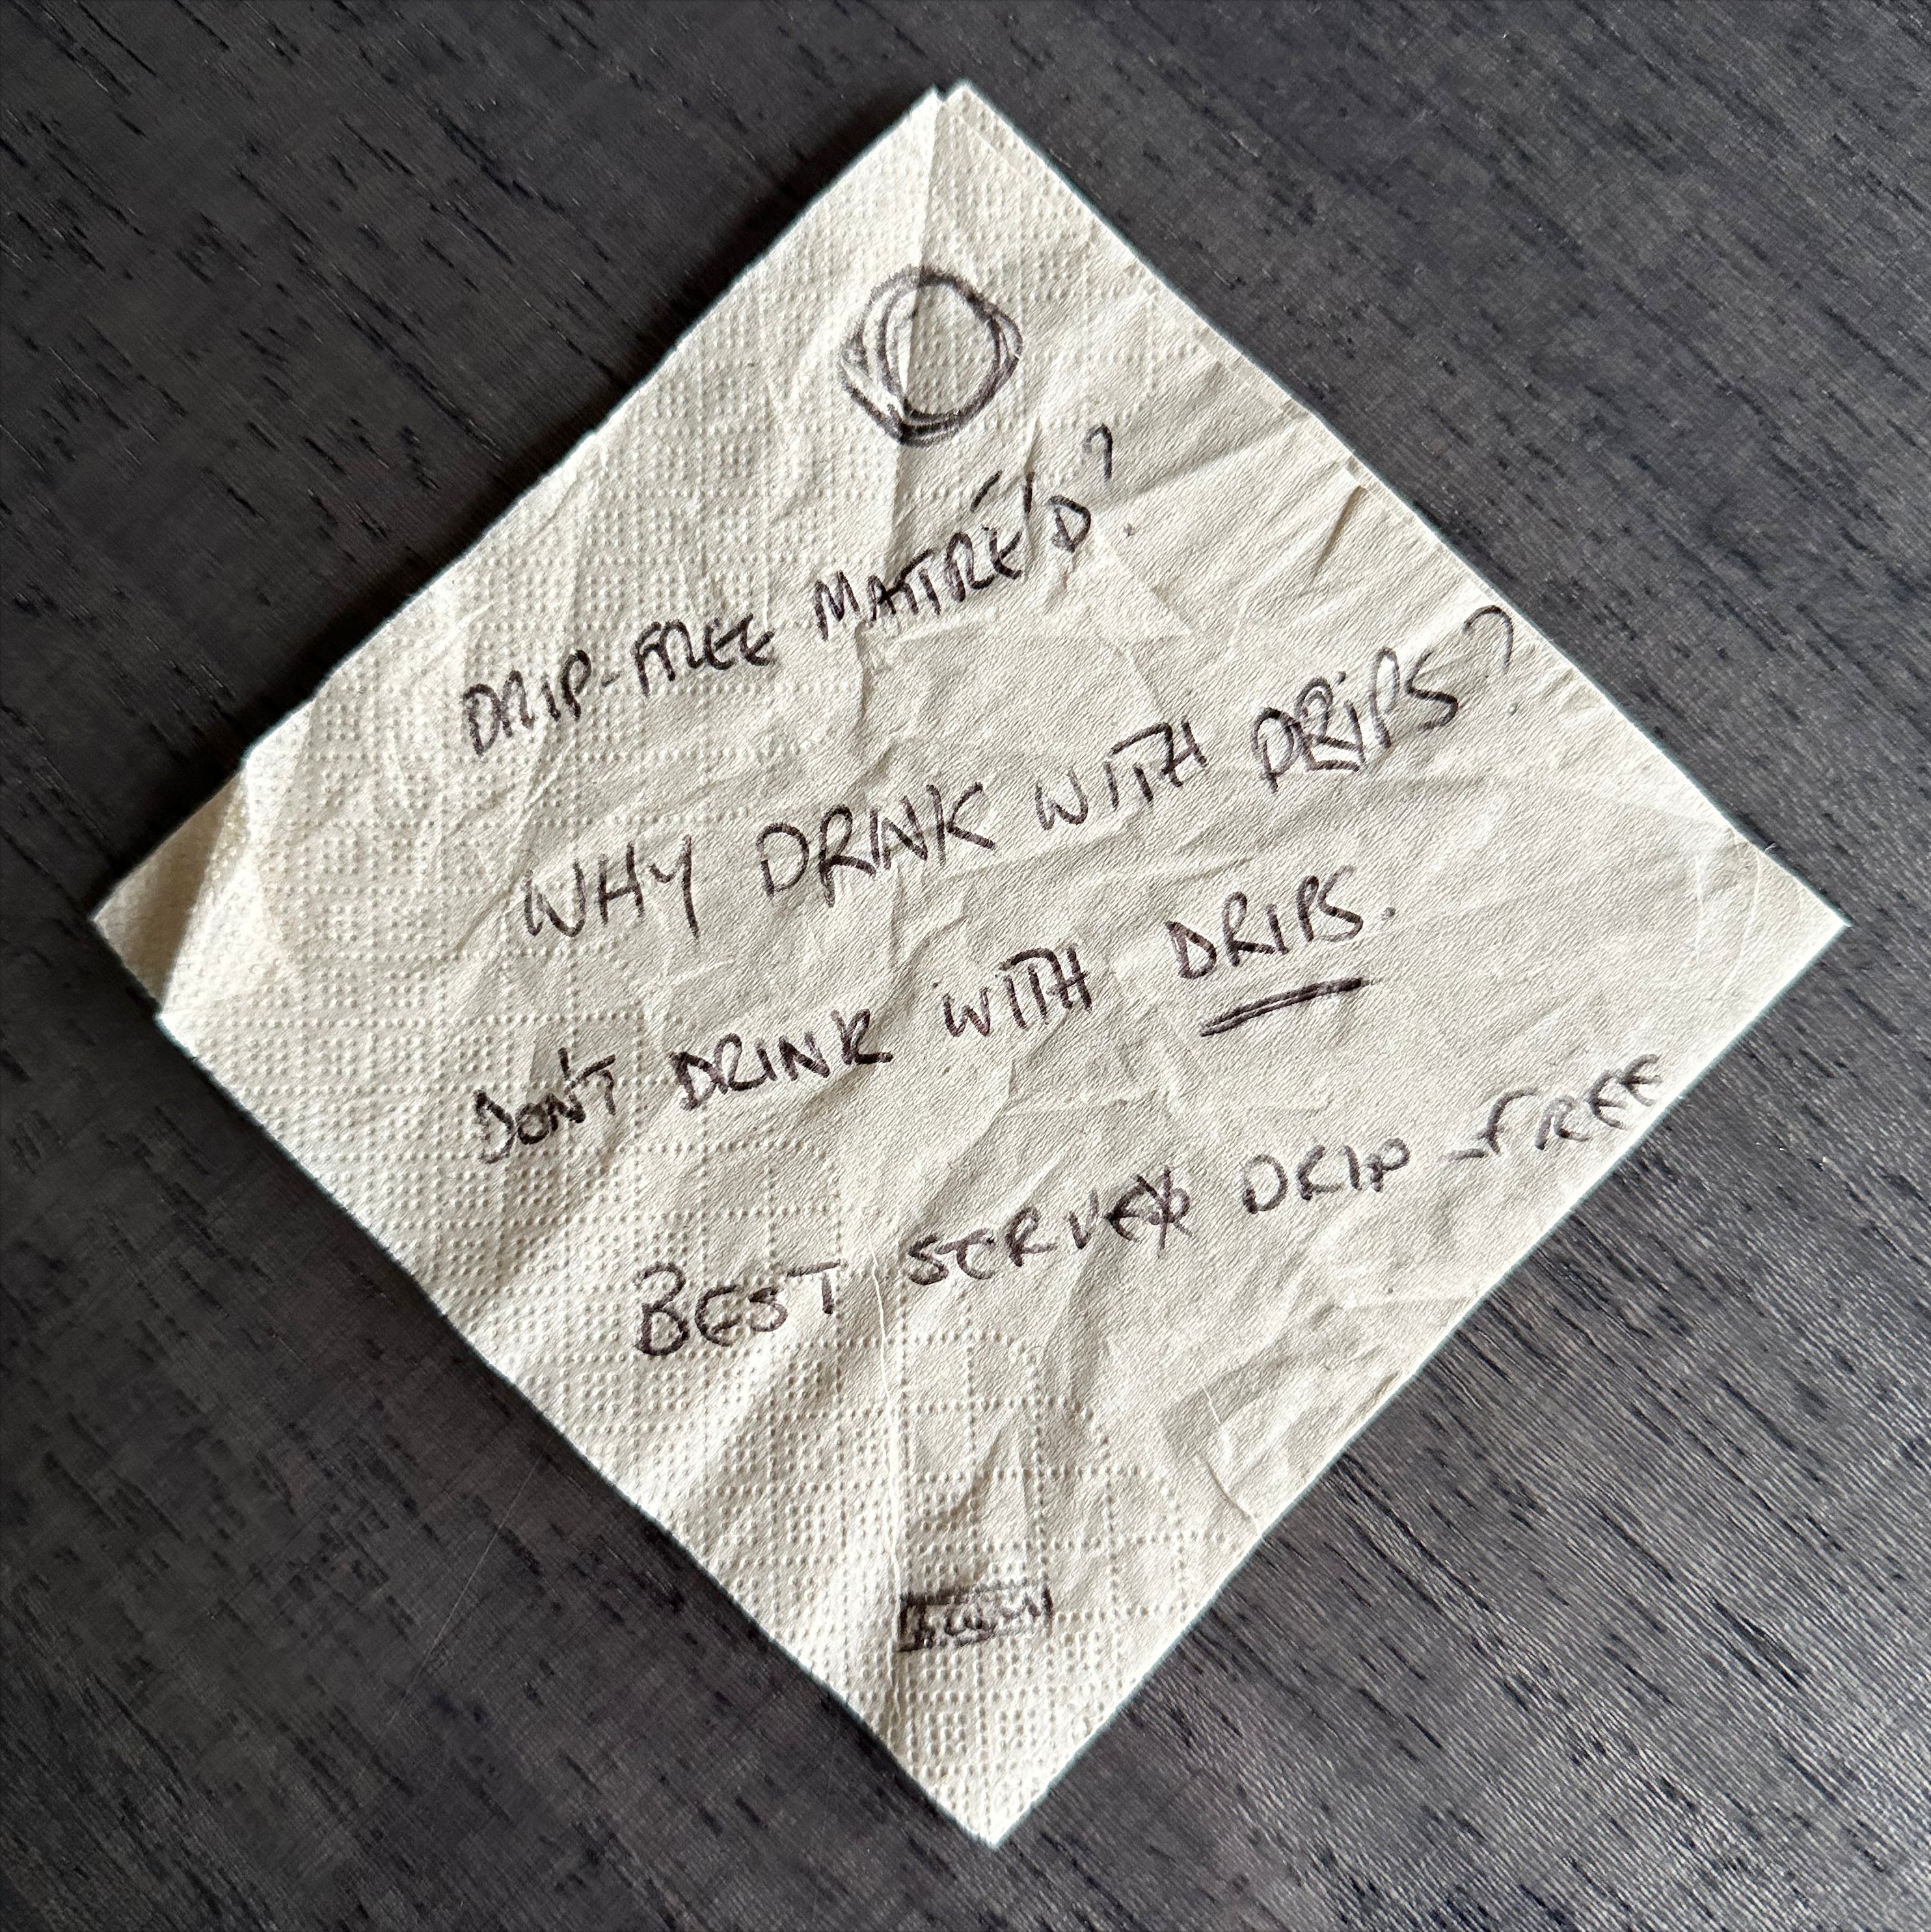 DRIP-FREE MATTRÉ'D?
WHY DRINK WITH DRIPS?
DON'T DRINK WITH DRIPS.
BEST SERVE DRIP-FREE